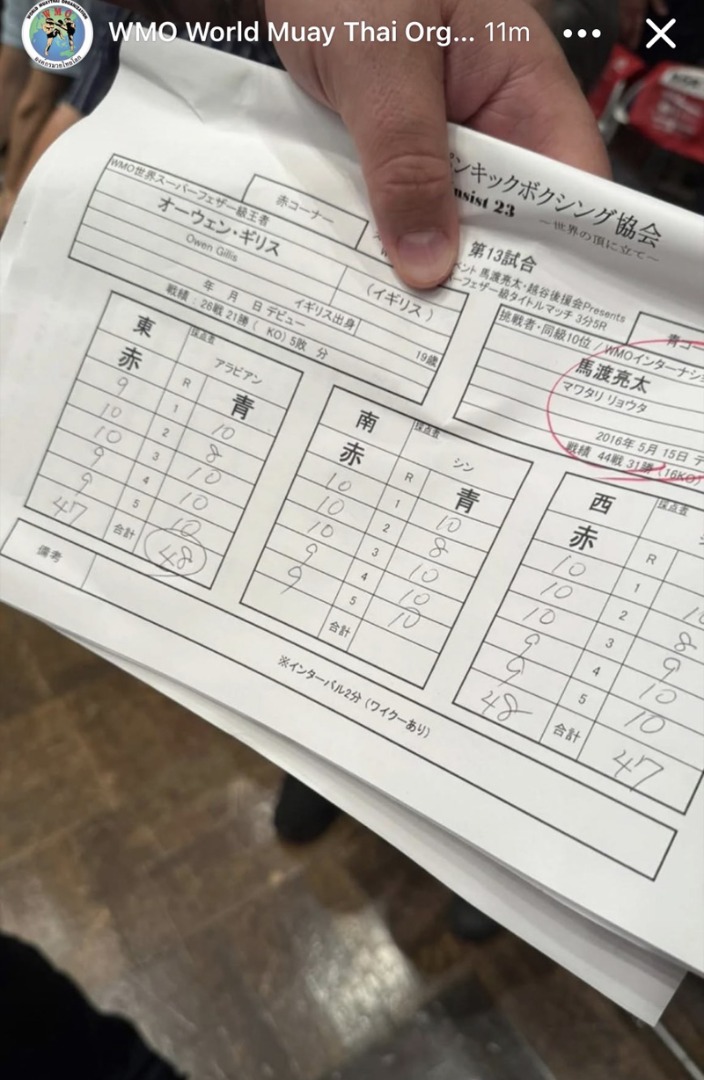 WMO World Muay Thai Org... 11m
ンキックボクシング協会
nsist 23
～世界の頂に立て～
WMO世界スーパーフェザー級王者
赤コーナー
オーウェン・ギリス
Owen Gillis
(イギリス)
年 月 日 デビュー
イギリス出身
19歳
戦績：26戦 21勝 ( KO) 5敗 分
第13試合
ベント 馬渡亮太・越谷後援会Presents
ーフェザー級タイトルマッチ 3分5R
挑戦者・同級10位 / WMOインターナシ
青コー
馬渡亮太
マワタリ リョウタ
2016年 5月 15日 デ
戦績 44戦 31勝 (16KO)
東
採点者
アラビアン
赤 R 青
9 1 10
10 2 8
10 3 10
9 4 10
9 5 10
47 合計 48
南
採点者
シン
赤 R 青
10 1 10
10 2 8
10 3 10
9 4 10
9 5 10
合計
西
採点者
赤 R
10 1
10 2 10
10 3 8
9 4 9
9 5 10
48 合計 10
47
備考
※インターバル2分（ワイクーあり）